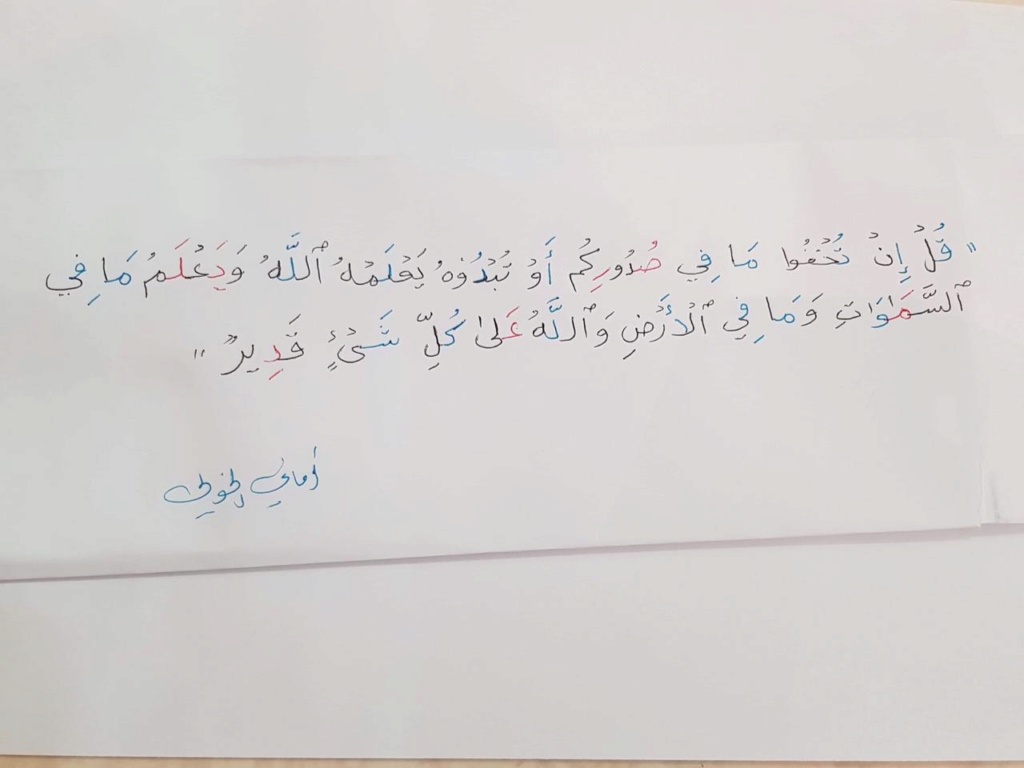 " قُلْ إِنْ تُخْفُوا مَا فِي صُدُورِكُم أَوْ تُبْدُوْهُ يَعْلَمْهُ ٱللَّهُ وَيَعْلَمُ مَا فِي
ٱلسَّمَٰوَٰتِ وَمَا فِي ٱلْأَرْضِ وَٱللَّهُ عَلىٰ كُلِّ شَىْءٍ قَدِيرٌ "
أماني الخولي